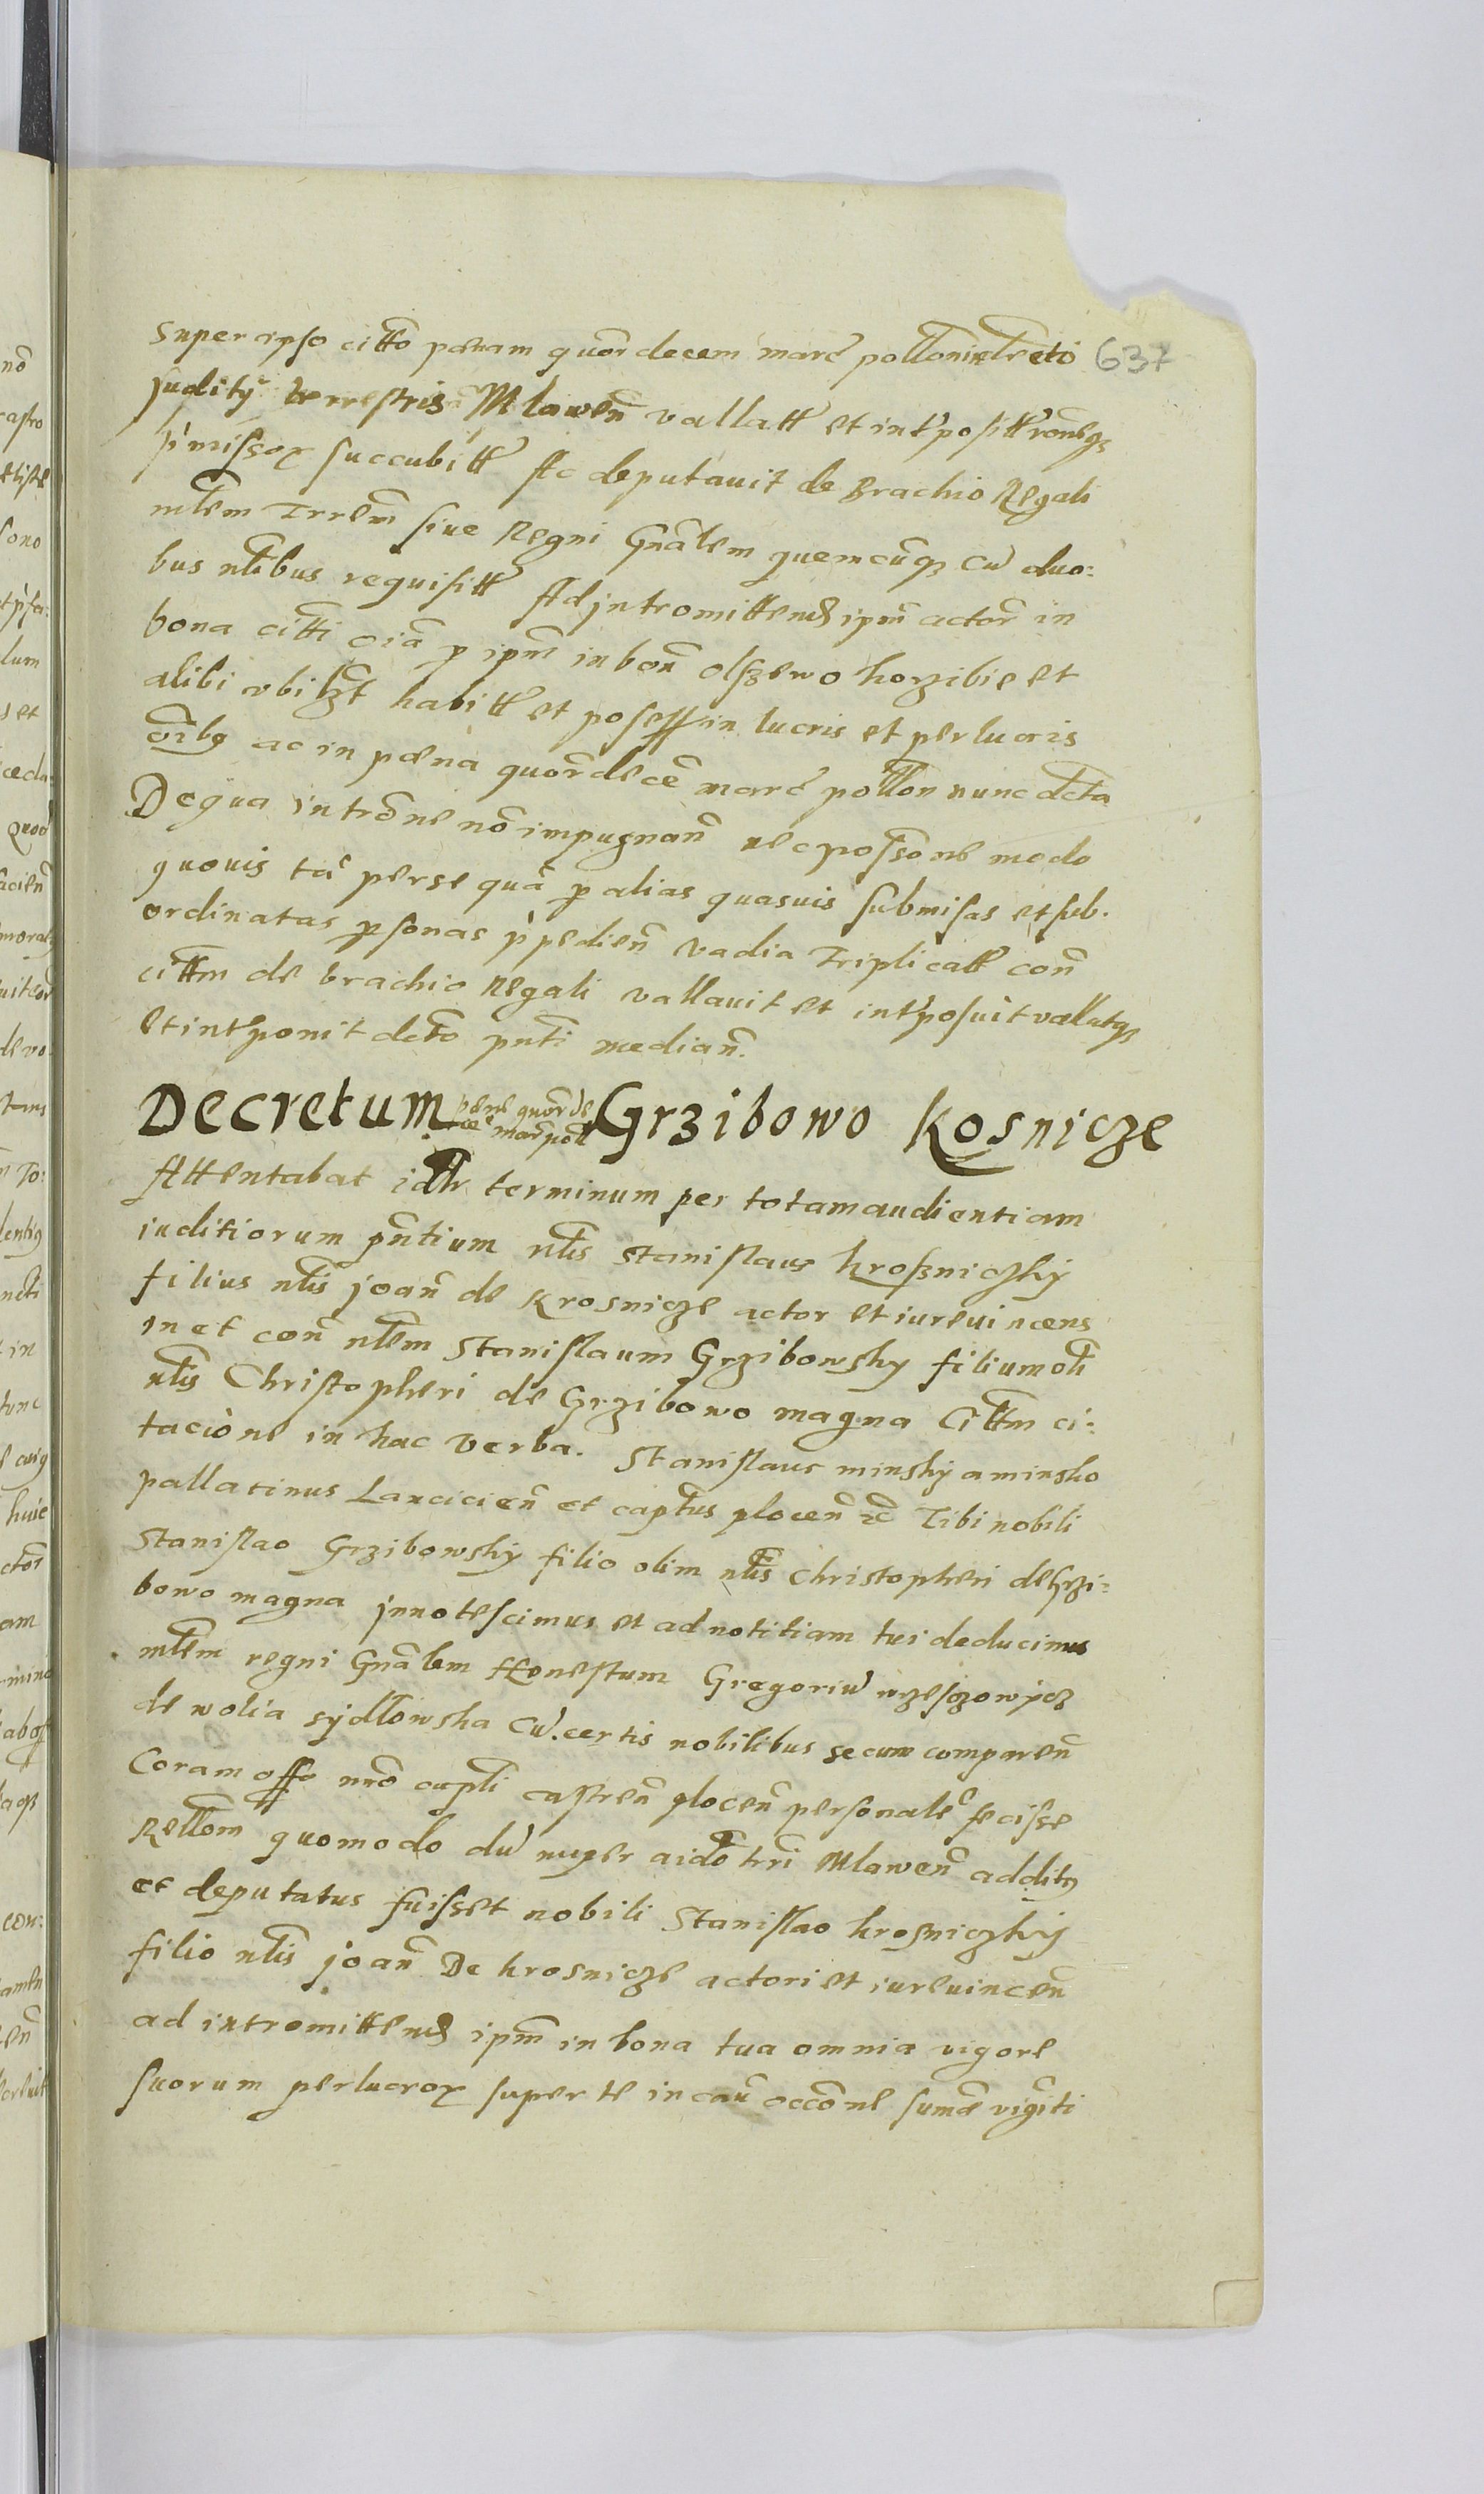 super ipso citto pœnam quor decem marc pollonin dreto 637
judity terrestris Mlawen vallatt et intpositt rоneqz
pmissor succubitt Ac deputauit de Brachio Regali
mlem Trrem siue Regni Gnalem quemcuqz Cu duo:
bus nlibus requisitt Ad jntromittend ipm actor in
bona citti oia p ipm in bon olszewo horzibie et
alibi vbi habitt et possess in lucris et perlucris
oibus ac in pœna quordece marc pollon nunc dcta
De qua introne no impugnan nec possone modo
quouis ta per se qua p alias quasuis submisas et sub.
ordinatas psonas ppedien vadia Triplicatt con
cittm de brachio Regali vallauit et intposuit vallatqz
et intponit dcto pnti median.
Decretum pene quorde ce marpoll Grzibowo Kosnicze
Attentabat idr terminum per totam audientiam
iuditiorum pntium nlis Stanislaus krosniczky
filius nlis joan de Krosnicze actor et iureuincens
in et con nlem Stanislaum Grzibowsky filium oli
nlis Christopheri de Grzibowo magna Cittm ci:
tacione in hac verba. Stanislaus minsky a minsko
pallatinus Lancicien et captus plocen &c Tibi nobili
Stanislao Grzibowsky filio olim nlis Christopheri de Grzi:
bowo magna jnnotescimus et ad notitiam tui deducimus
mlem regni Gnalem Honestum Gregoriu wrzesczowycz
de wolia sydlowska Cu certis nobilibus secum comparen
Coram offo nro capli castren plocen personalr fecisse
Rellom quomodo du nuper aido trri Mlawen additus
et deputatus fuisset nobili Stanislao krosniczky
filio nlis joan De krosnicze actori et iureuincen
ad intromittend ipm in bona tua omnia vigore
suorum perlucror super te in cau occone sume viginti